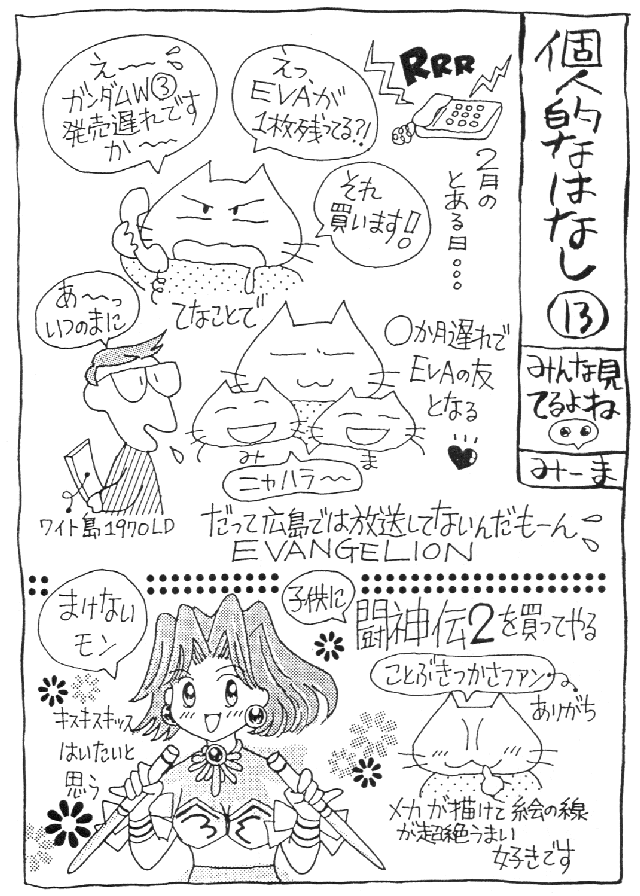 個人的なはなし
⑬
みんな見
てるよね
みーま
RRR
2月の
とある日・・・
えっ、
EVAが
1枚残ってる?!
え〜〜
ガンダムW③
発売遅れです
か〜〜
それ
買います!
てなことで
あ〜〜っ
いつのまに
〇か月遅れで
EVAの友
となる
み
ま
ニャハラ〜〜
ワイト島1970LD
だって広島では放送してないんだもーん
EVANGELION
子供に
闘神伝2を買ってやる
まけない
モン
キスキスキッス
はいたいと
思う
ことぶきつかさファンね。
ありがち
メカが描けて絵の線
が超絶うまい
好きです